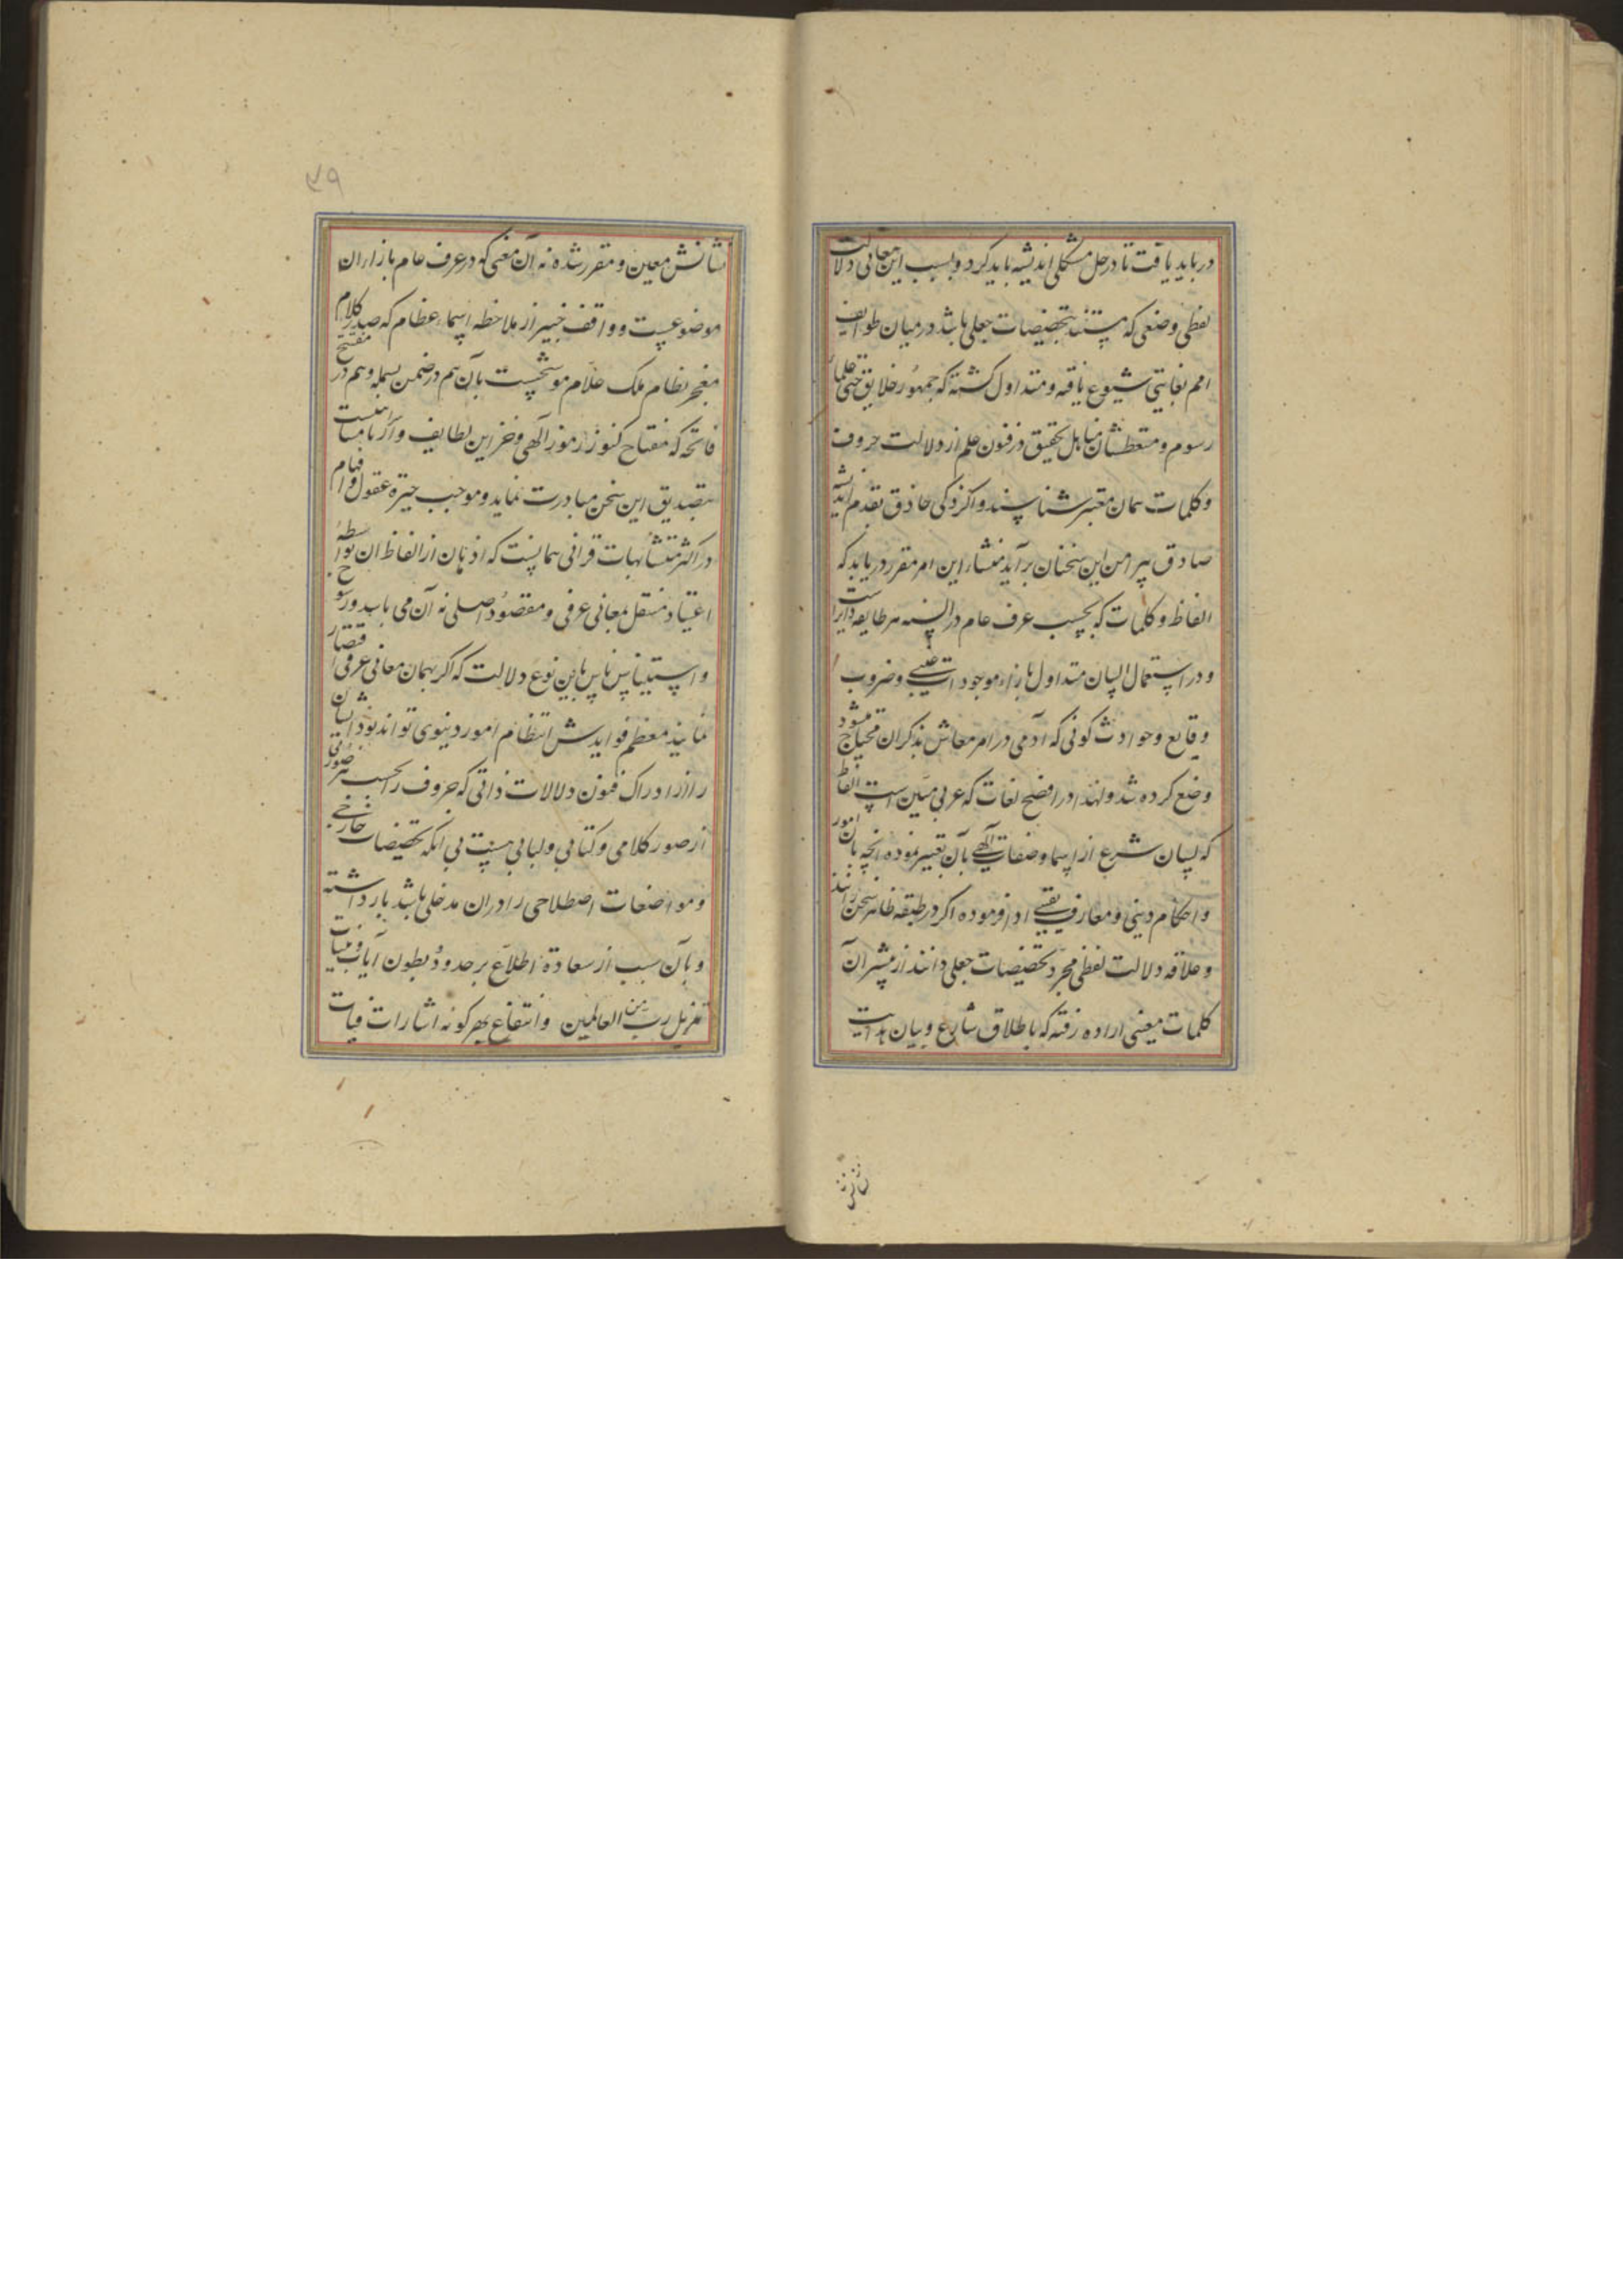 در باید یافت تا در حل مشکلی اندیشه باید کرد و بسبب این معانی دلالت
لفظی وضعی که مستند بتخصیصات جعلی باشد در میان طوایف
امم بغایتی شیوع یافته و متداول کشته که جمهور خلایق حتی علماء
رسوم و متعطشان مناهل تحقیق در فنون علم از دلالت حروف
و کلمات همان معتبر شناسند و اکر ذکی حاذق بقدم اندیشه
صادق پیرامن این سخنان برآید منشاء این امر مقرر دریابد که
الفاظ و کلمات که بحسب عرف عام در السنه هر طایفه دایرست
و در استعمال ایشان متداول بازاء موجودات عینی و ضروب
وقایع و حوادث کونی که آدمی در امر معاش بذکر آن محتاج میشود
وضع کرده شد و لهذا در افصح لغات که عربی مبین است الفاظ
که لسان شرع از اسما و صفات الهی بآن تعبیر نموده و آنچه بآن امور
و احکام دینی و معارف یقینی ادا فرموده اکر در طبقه ظاهر سخن رانند
و علاقه دلالت لفظی مجرد تخصیصات جعلی دانند از مبشر آن
کلمات معینی اراده رفته که باطلاق شارع و بیان هدایت
نشانش
۳۹
نشانش معین و مقرر شده نه آن معنی که در عرف عام بازاء آن
موضوعیست و واقف خبیر از ملاحظه اسماء عظام که صدر کلام
معجز نظام ملک علام موشحست بآن هم در ضمن بسمله و هم در مفتتح
فاتحه که مفتاح کنوز رموز الهی و خزاین لطایف و اکر نامیست
بتصدیق این سخن مبادرت نماید و موجب حیرة عقول و افهام
در اکثر متشابهات قرآنی همانیست که اذهان از الفاظ آن بواسطه
اعتیاد منتقل بمعانی عرفی و مقصود اصلی نه آن می باشد و رسوخ
و استیناس ناس باین نوع دلالت که اکر بهمان معانی عرفی اقتصار
نمایند معظم فوایدش انتظام امور دنیوی تواند بود ایشان
را از ادراک فنون دلالات ذاتی که حروف را بحسب هر صورتی
از صور کلامی و کتابی و لبابی هست بی آنکه تخصیصات خارجی
و مواضعات اصطلاحی را در آن مدخلی باشد باز داشته
و بآن سبب از سعادة اطلاع بر حدود و بطون آیات بینات
تنزیل من رب العالمین و انتفاع بهر کونه اشارات